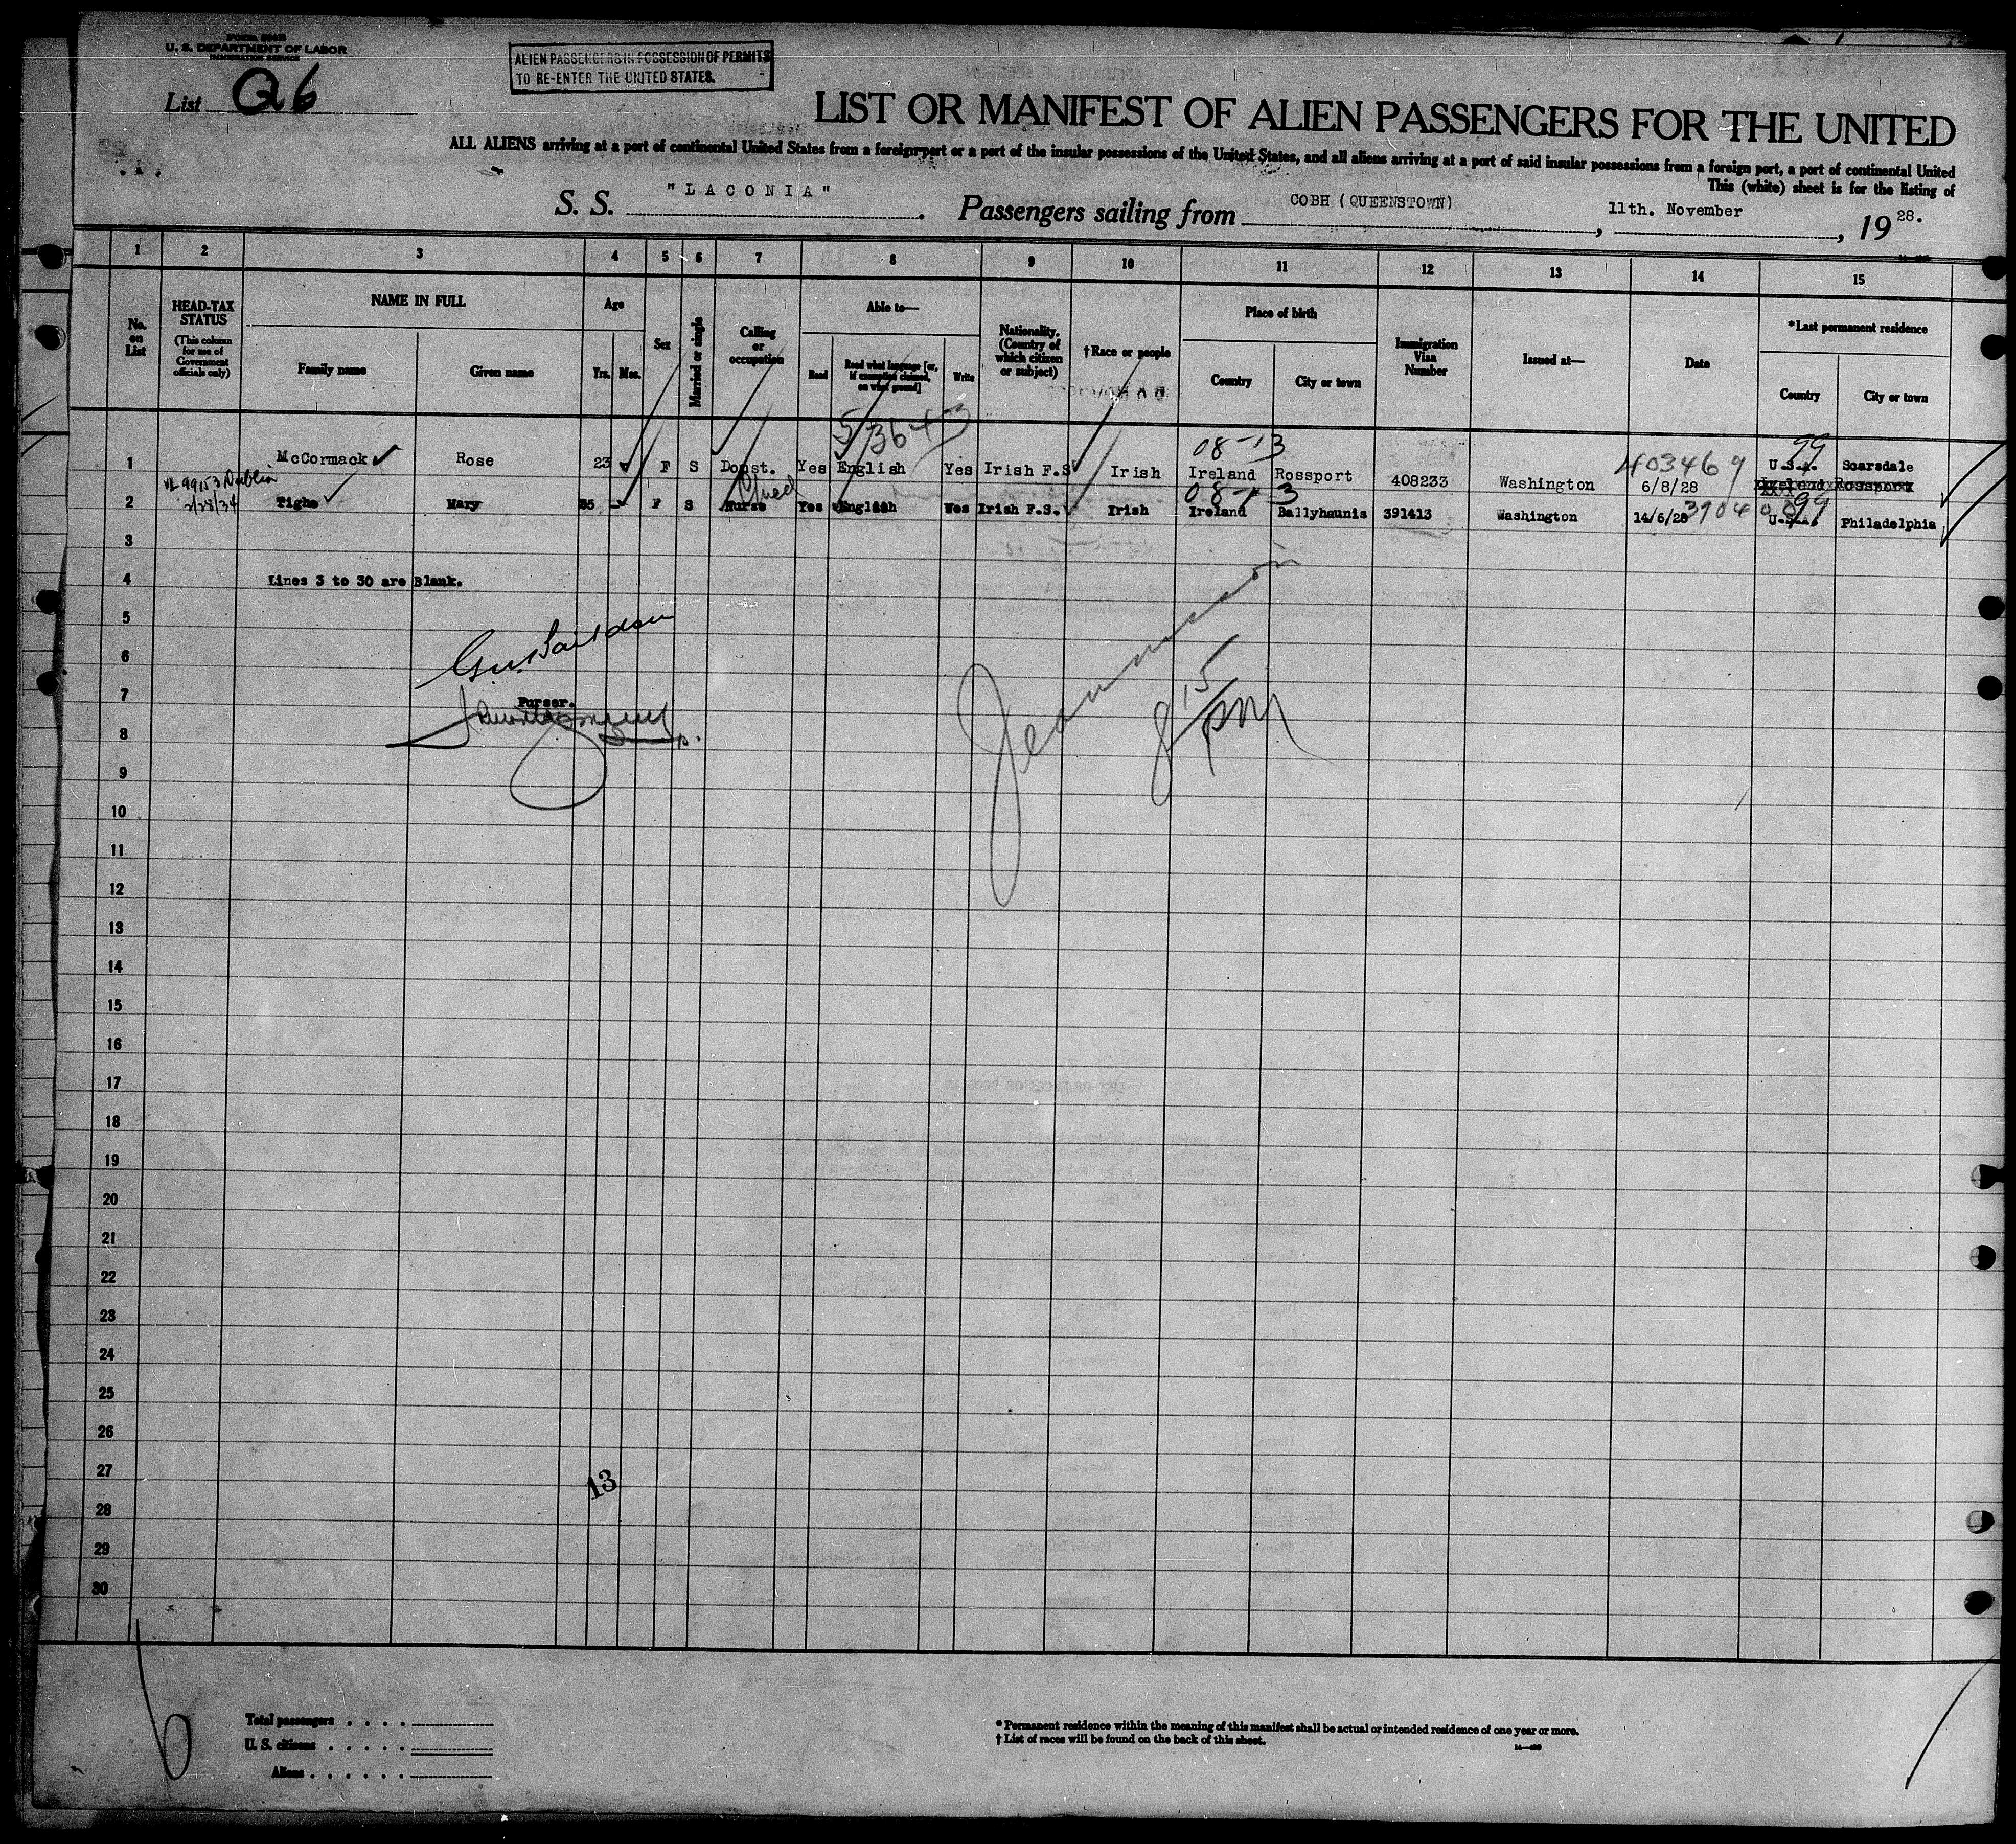 U. S. DEPARTMENT OF LABOR
IMMIGRATION SERVICE
List Q6
ALIEN PASSENGERS IN POSSESSION OF PERMITS
TO RE-ENTER THE UNITED STATES.
LIST OR MANIFEST OF ALIEN PASSENGERS FOR THE UNITED
ALL ALIENS arriving at a port of continental United States from a foreign port or a port of the insular possessions of the United States, and all aliens arriving at a port of said insular possessions from a foreign port, a port of continental United
This (white) sheet is for the listing of
S. S. "LACONIA". Passengers sailing from COBH (QUEENSTOWN), 11th. November, 1928.
1 2 3 4 5 6 7 8 9 10 11 12 13 14 15
No. on List
HEAD-TAX STATUS
(This column for use of Government officials only)
NAME IN FULL
Family name Given name
Age
Yrs. Mos.
Sex
Married or single
Calling or occupation
Able to—
Read Read what language [or, if exemption claimed, on what ground] Write
Nationality. (Country of which citizen or subject)
†Race or people
Place of birth
Country City or town
Immigration Visa Number
Issued at—
Date
*Last permanent residence
Country City or town
5/3643
08-13 403469 99
1 McCormack Rose 23 F S Domst. Yes English Yes Irish F.S Irish Ireland Rossport 408233 Washington 6/8/28 U.S.A. Scarsdale
Ireland Rossport
99153 Dublin
2/28/34
08-13 99
2 Tighe Mary 35 - F S Nurse Yes English Yes Irish F.S. Irish Ireland Ballyhaunis 391413 Washington 14/6/28 U.S.A. Philadelphia
3
4 Lines 3 to 30 are Blank.
5
6
7 Purser.
8 8 15/PM
9
10
11
12
13
14
15
16
17
18
19
20
21
22
23
24
25
26
27 13
28
29
30
Total passengers . . . .
U. S. citizens . . . . .
Aliens . . . . . .
* Permanent residence within the meaning of this manifest shall be actual or intended residence of one year or more.
† List of races will be found on the back of this sheet.